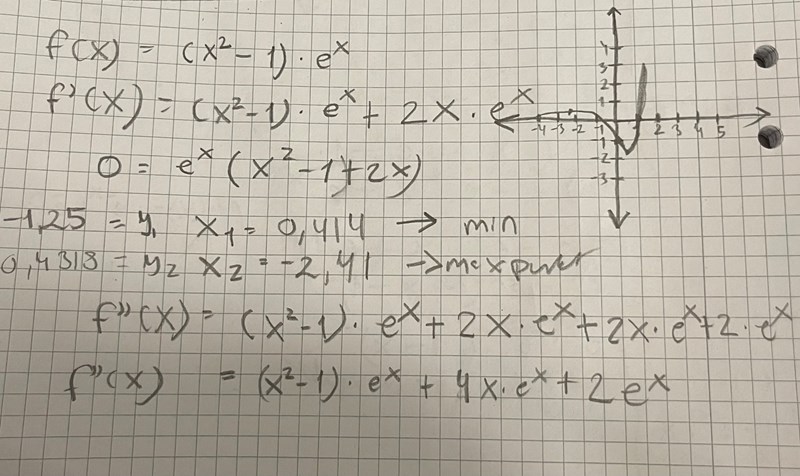 f(x) = (x²-1)·eˣ
f'(x) = (x²-1)·eˣ + 2x·eˣ
0 = eˣ(x²-1+2x)
-1,25 = y₁ x₁ = 0,414 → min
0,4318 = y₂ x₂ = -2,41 ->
f''(x) = (x²-1)·eˣ + 2x·eˣ + 2x·eˣ + 2·eˣ
f''(x) = (x²-1)·eˣ + 4x·eˣ + 2eˣ
4
3
2
1
-4 -3 -2 -1 2 3 4 5
-1
-2
-3